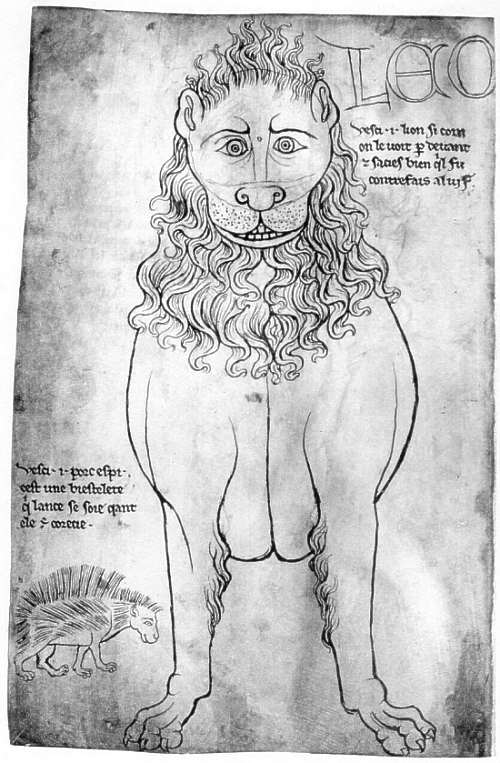 LEO
Vesci · i · lion si com
on le voit p devant
z sacies bien ql fu
contrefais al vif
Vesci · i · porc espi ·
cest une biestelete
ql lance se soie qant
ele ÷ corecie ·